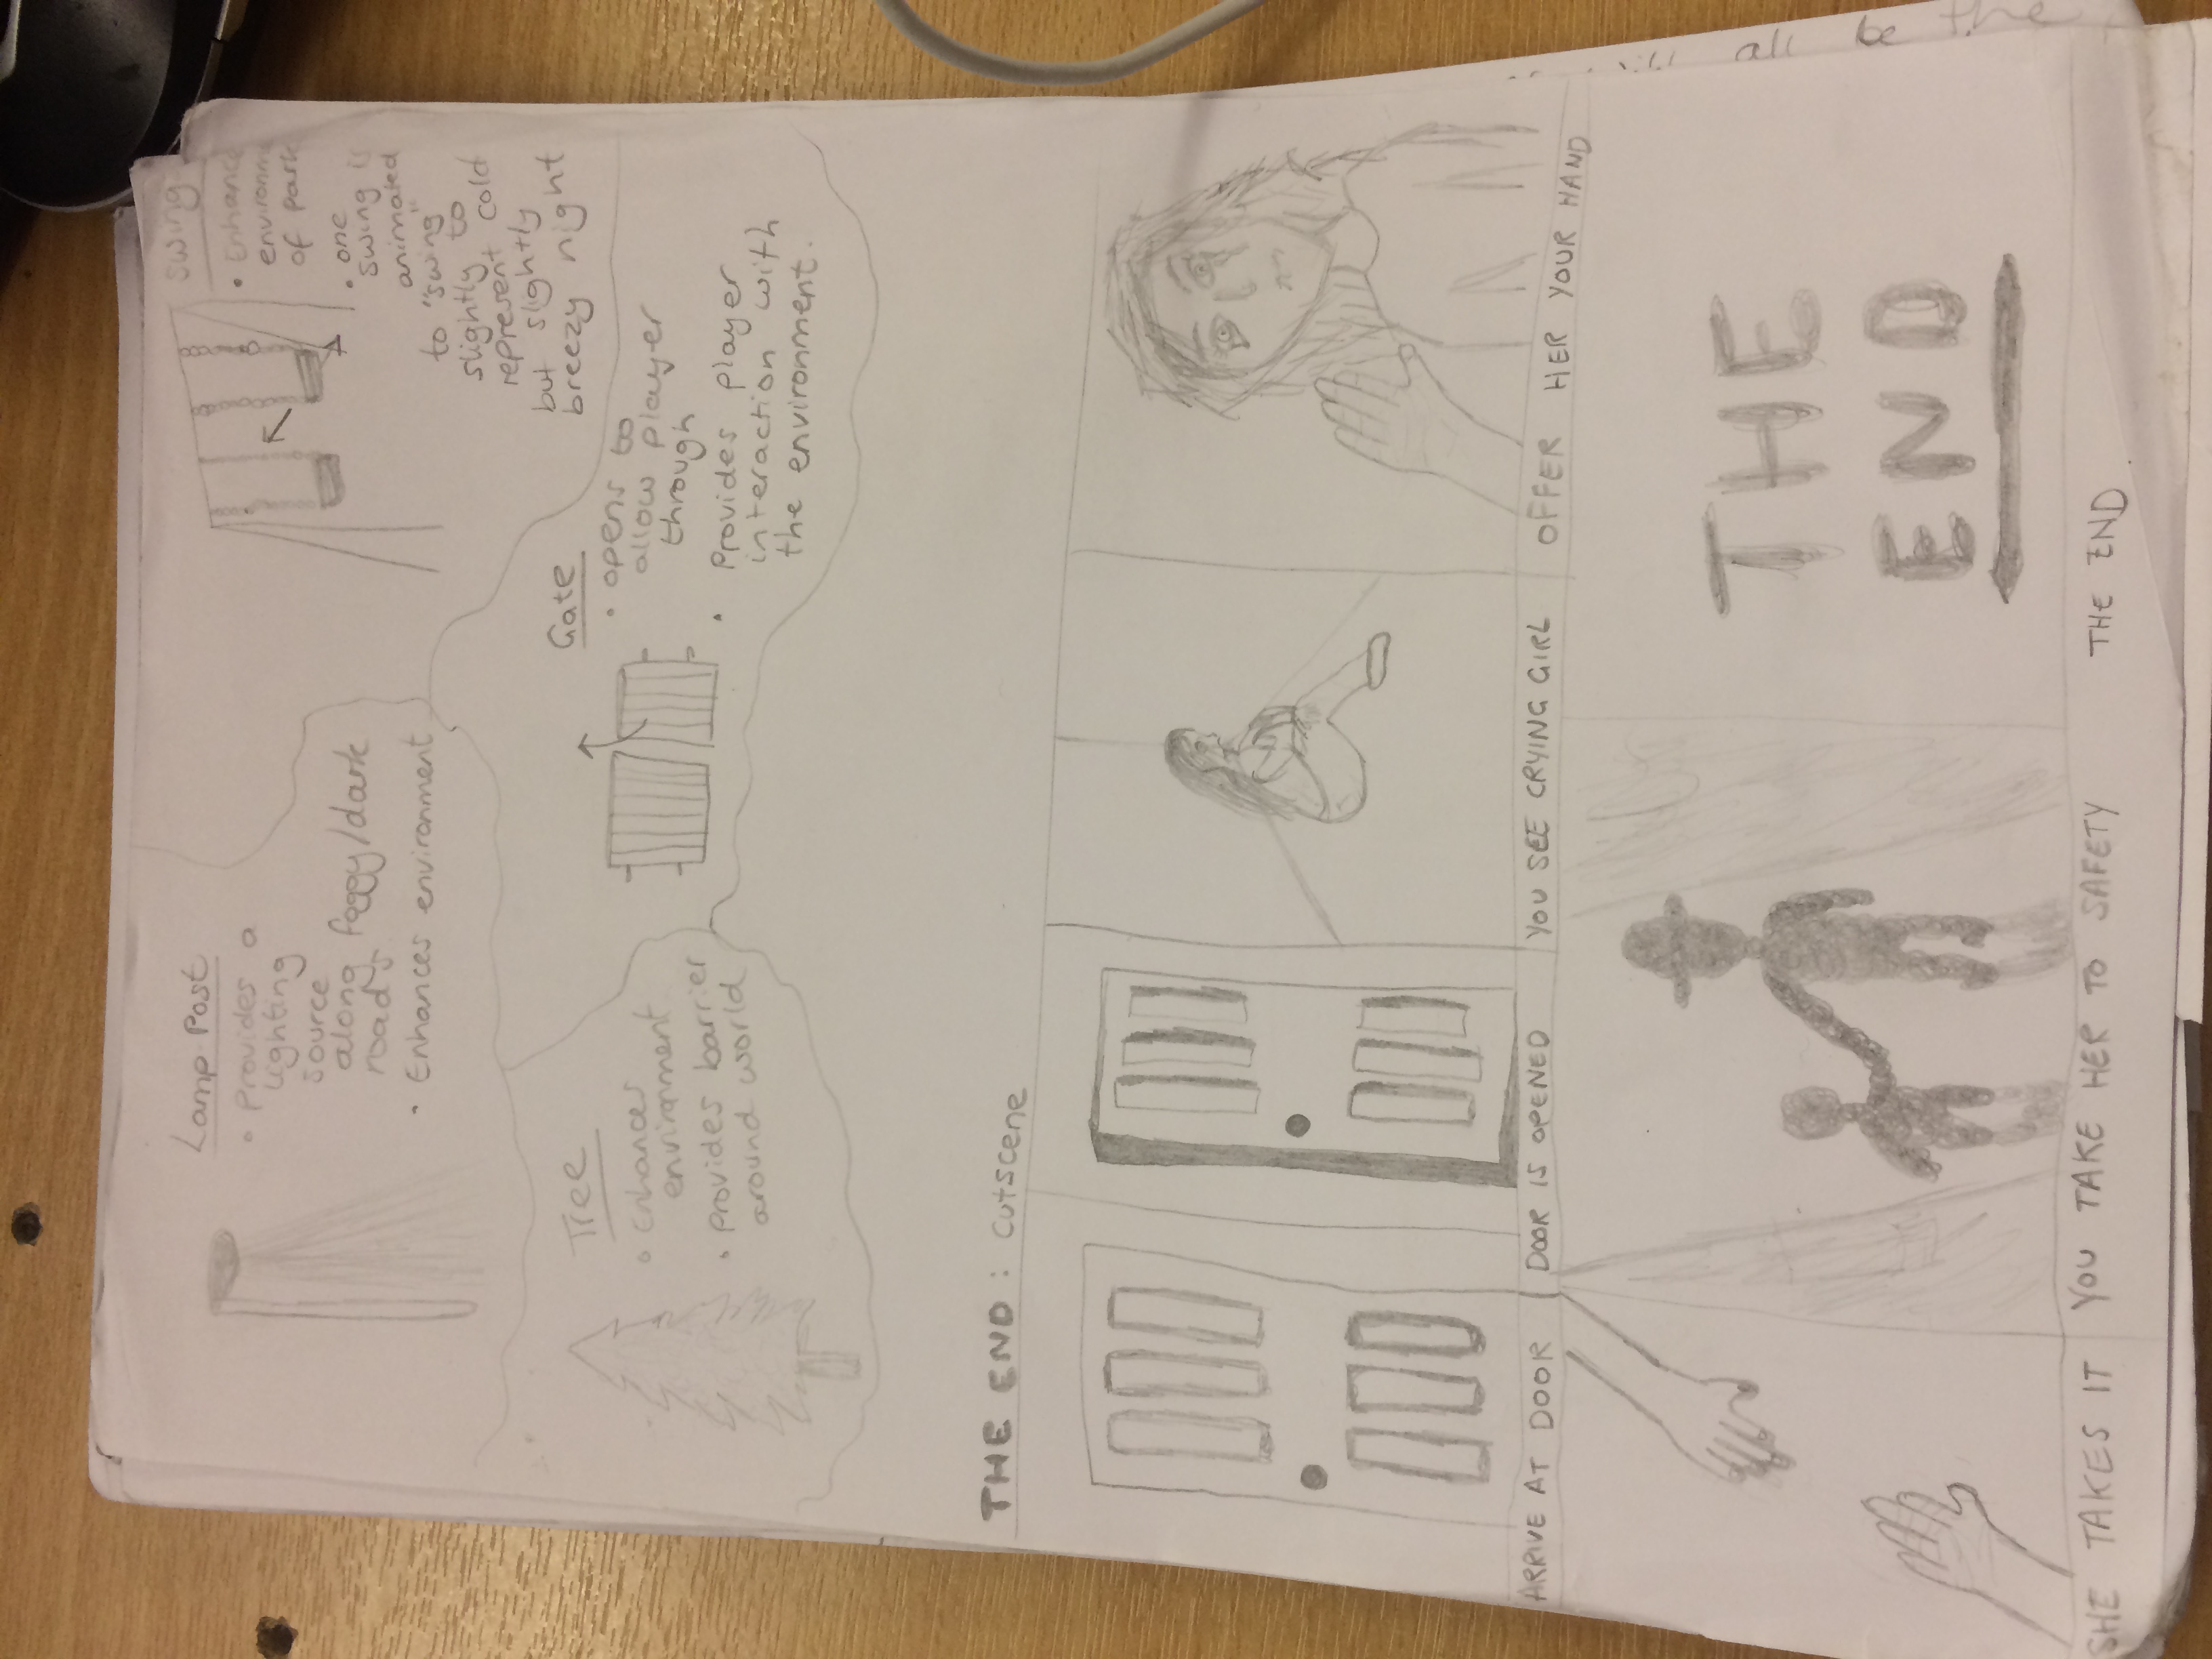 Lamp Post
• Provides a
lighting
source
along foggy/dark
roads.
• Enhances environment
swing
• Enhance
environm
of park
• one
swing is
animated
to "swing"
slightly to
represent cold
but slightly
breezy night
Tree
• Enhances
environment
• Provides barrier
around world
Gate
• opens to
allow player
through
• Provides player
interaction with
the environment.
THE END: Cutscene
ARRIVE AT DOOR
DOOR IS OPENED
YOU SEE CRYING GIRL
OFFER HER YOUR HAND
THE
END
SHE TAKES IT
YOU TAKE HER TO SAFETY
THE END.
all be the